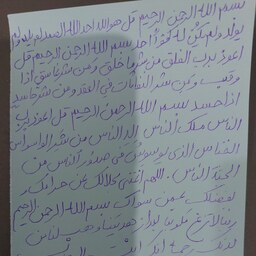 بسم الله الرحمن الرحيم قل هو الله احد الله الصمد لم يلد ولم
يولد ولم يكن له كفوا أحد بسم الله الرحمن الرحيم قل
اعوذ برب الفلق من شر ما خلق ومن شر غاسق اذا
وقب ومن شر النفاثات في العقد ومن شر حاسد
اذا حسد بسم الله الرحمن الرحيم قل اعوذ برب
الناس ملك الناس اله الناس من شر الوسواس
الخناس الذي يوسوس في صدور الناس من
الجنة الناس. اللهم اغنني بحلالك عن حرامك و
بفضلك عمن سواك بسم الله الرحمن الرحيم
ربنا لا تزغ قلوبنا بعد اذ هديتنا وهب لنا من
لدنك رحمة إنك أنت